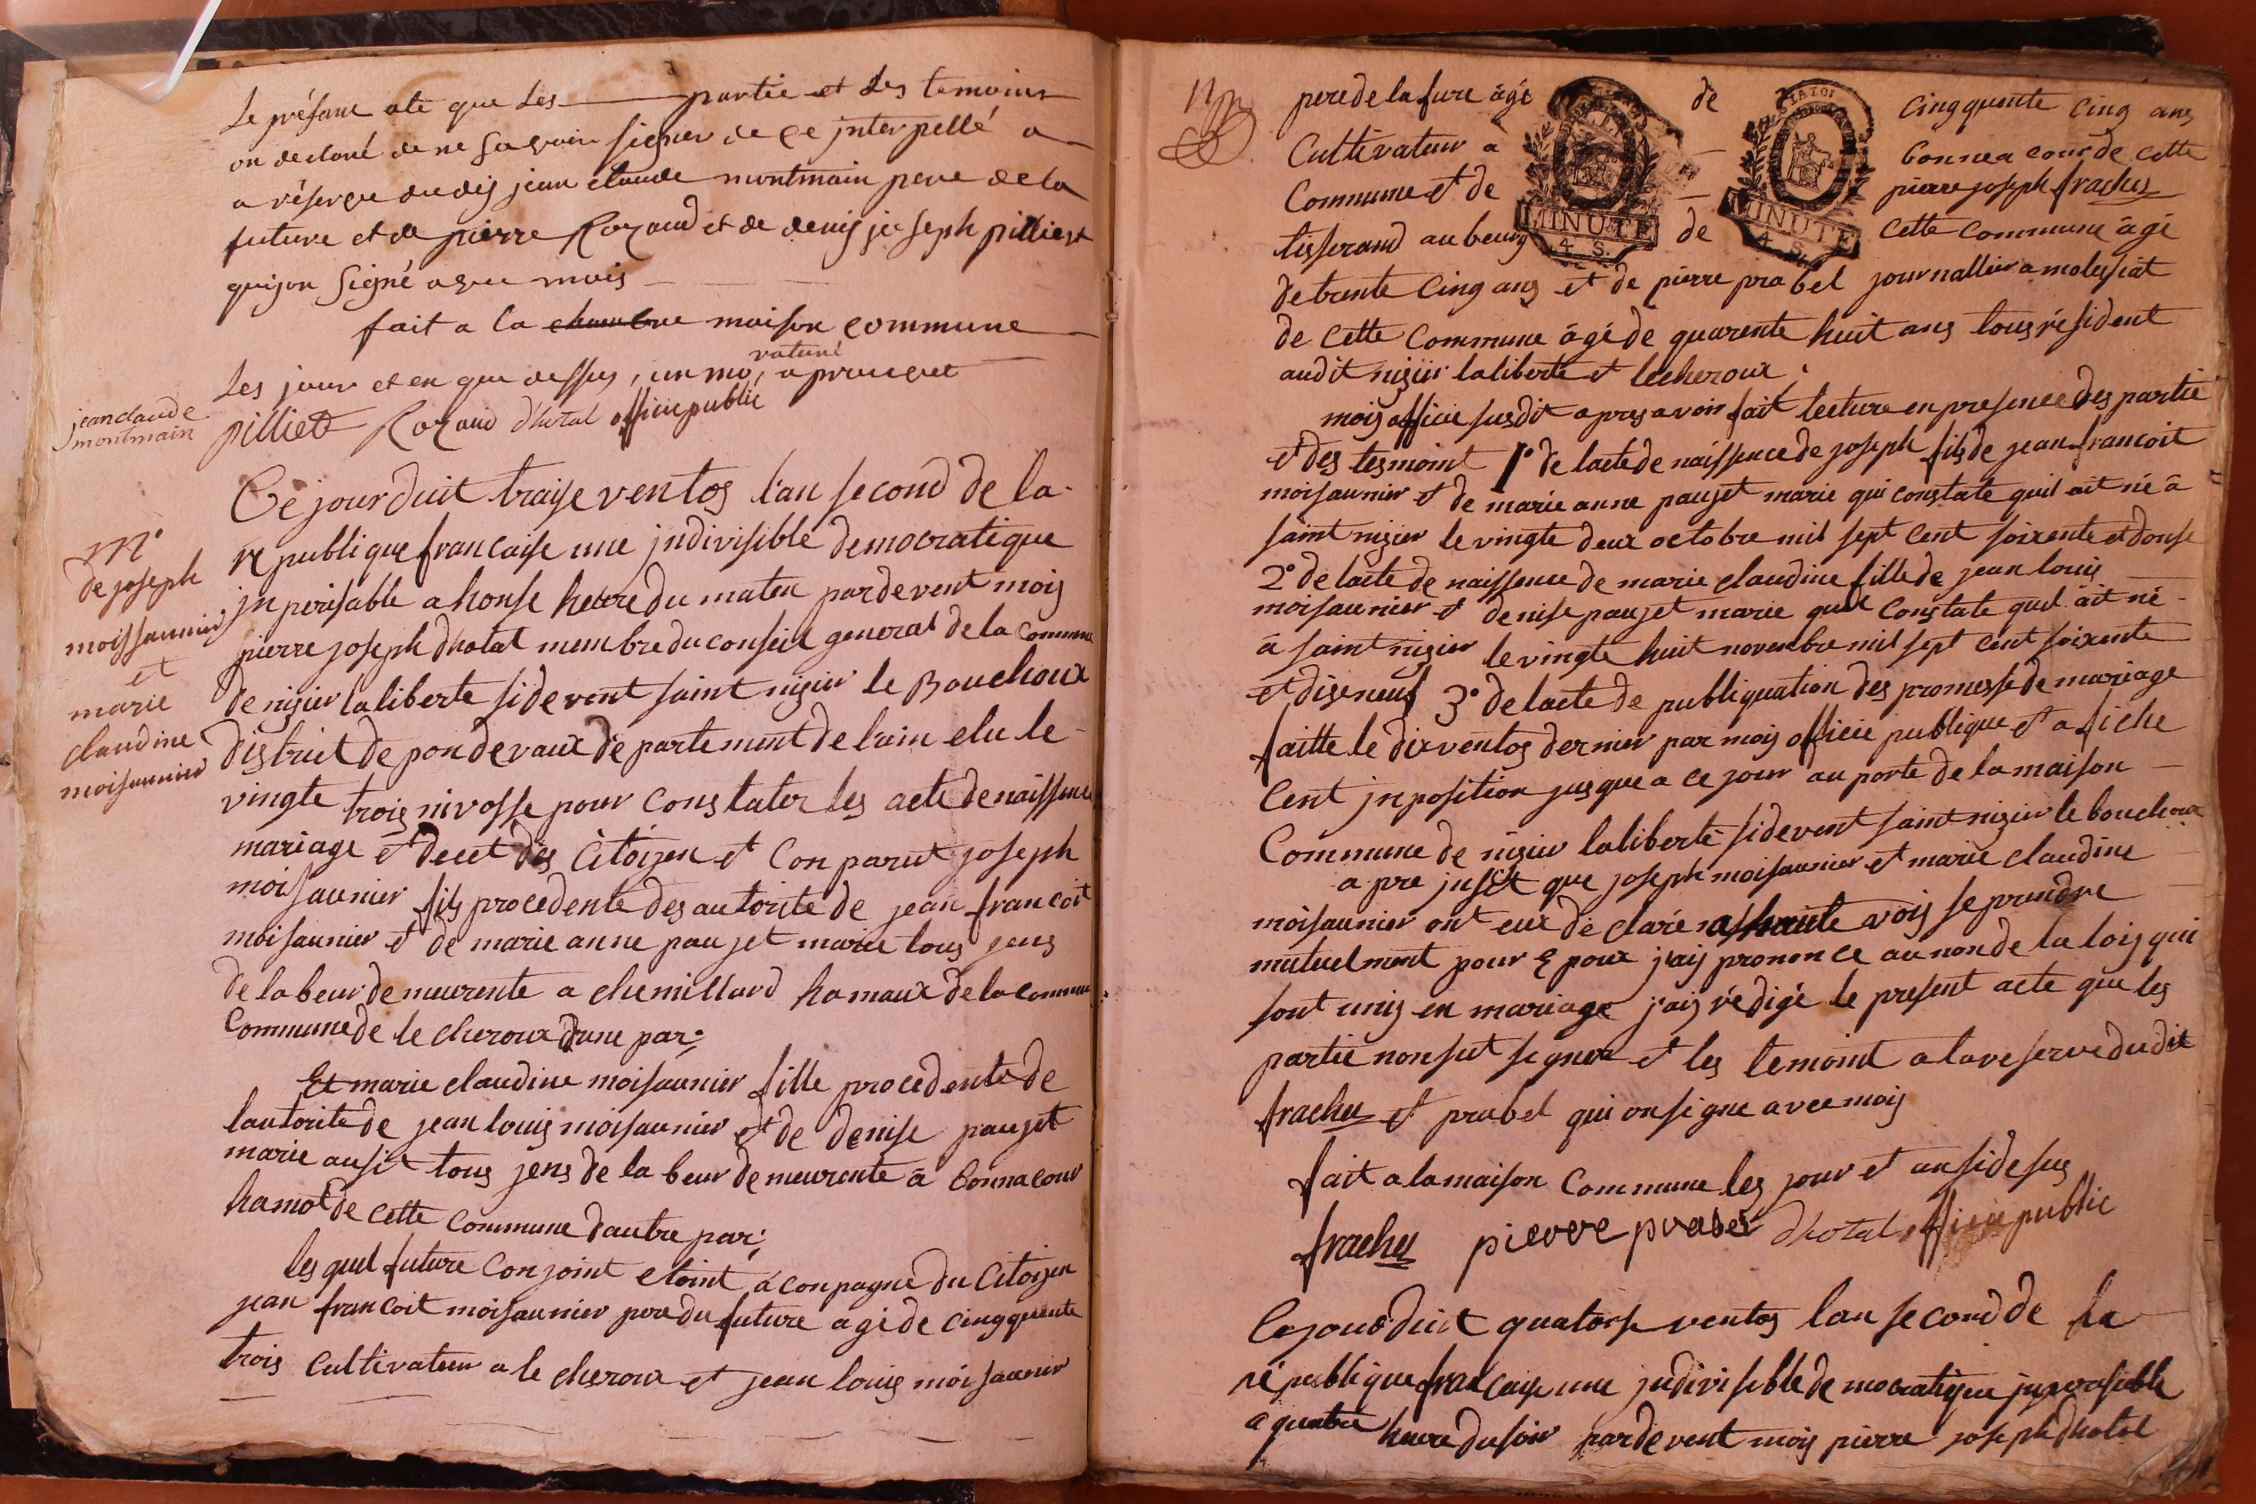 Le présant ate que les partie et des temoins
on declaré de ne savoir signer de ce interpellé a
a réserve dudis jean claude montmain pere de la
future et de pierre Rozand et de denis joseph pilliet
quijon signé avec mois
fait a la chambre maison commune
raturé
les jour et en que dessus, un mo, aprouvet
jean claude
montmain
pilliet Rozand dhotal officie public
Ce jourduit traise ventos l'an second de la
republique francaise une indivisible democratique
inperisable a honse heure du maten pardevent mois
pierre joseph dhotal membre du conseil general de la commune
de nizier laliberte sidevent saint nizier le Bouchoux
distrit de pondevaux departement de lain elu le
vingte trois nivosse pour constater les acte de naissence
mariage et decet des Citoizen et Conparut joseph
moisaunier fils procedente des autorite de jean francoit
moisaunier et de marie anne paujet marie tous jens
de labeur demeurente a chemillard hamaux de la commune
Commune de le cheroux dune par;
M.e
de joseph
moissaunier
et
marie
claudine
moisaunier
Et marie claudine moisaunier fille procedente de
lautorite de jean louis moisaunier et de denise paujet
marie ausit tous jens de la beur demeurente à bonnacour
hamot de cette commune dautre par;
les quel future Conjoint etoint aconpagne du Citoizen
jean francoit moisaunier pere du future agé de cingquente
trois Cultivateur a le cheroux et jean louis moisaunier
pere de la fure âgé de cingquente cinq ans
Cultivateur a bonnea cour de cette
Commune et de pierre joseph frachet
tisserand au bourg de cette commune âgé
MINUTE
4 S.
MINUTE
4 S.
de trente cinq ans et de pierre prabel journallier a molesiat
de cette commune âgé de quarente huit ans tous résident
audit nizier laliberte et lecheroux;
mois officie susdit apres avoir fait lecture en presence des partie
et des tesmoint 1° de lacte de naissence de joseph fils de jean francoit
moisaunier et de marie anne paujet marie qui constate quil ait né à
saint nizier le vingte deux octobre mil sept cent soixente et donse
2° de lacte de naissence de marie claudine fille de jean louis
moisaunier et denise paujet marie quil constate quel ait né
à saint nizier le vingte huit novenbre mil sept cent soixente
et diseneuf 3° de lacte de publiquation des promesse de mariage
faitte le dix ventos dernier par mois officie publique et afiche
Cent inposition jusque a ce jour au porte de la maison
Commune de nizier laliberté sidevent saint nizier le bouchoux
apre insit que joseph moisaunier et marie claudine
moisaunier ont eux déclaré a haute vois se prendre
mutuelment pour epoux jais prononce au non de la lois qui
sont unis en mariage jais rédigé le present acte que les
partie nonsut signer et les temoint a la reserve dudit
frachet et prabel qui on signe avec mois
fait a la maison Commune les jour et an sidesus
frachet pierre prabel dhotal officie public
Cejourduit quatorse ventos lan second de la
république francaise une indivisible democratique inperisable
a quatre heure du soir pardevent mois pierre joseph dhotal